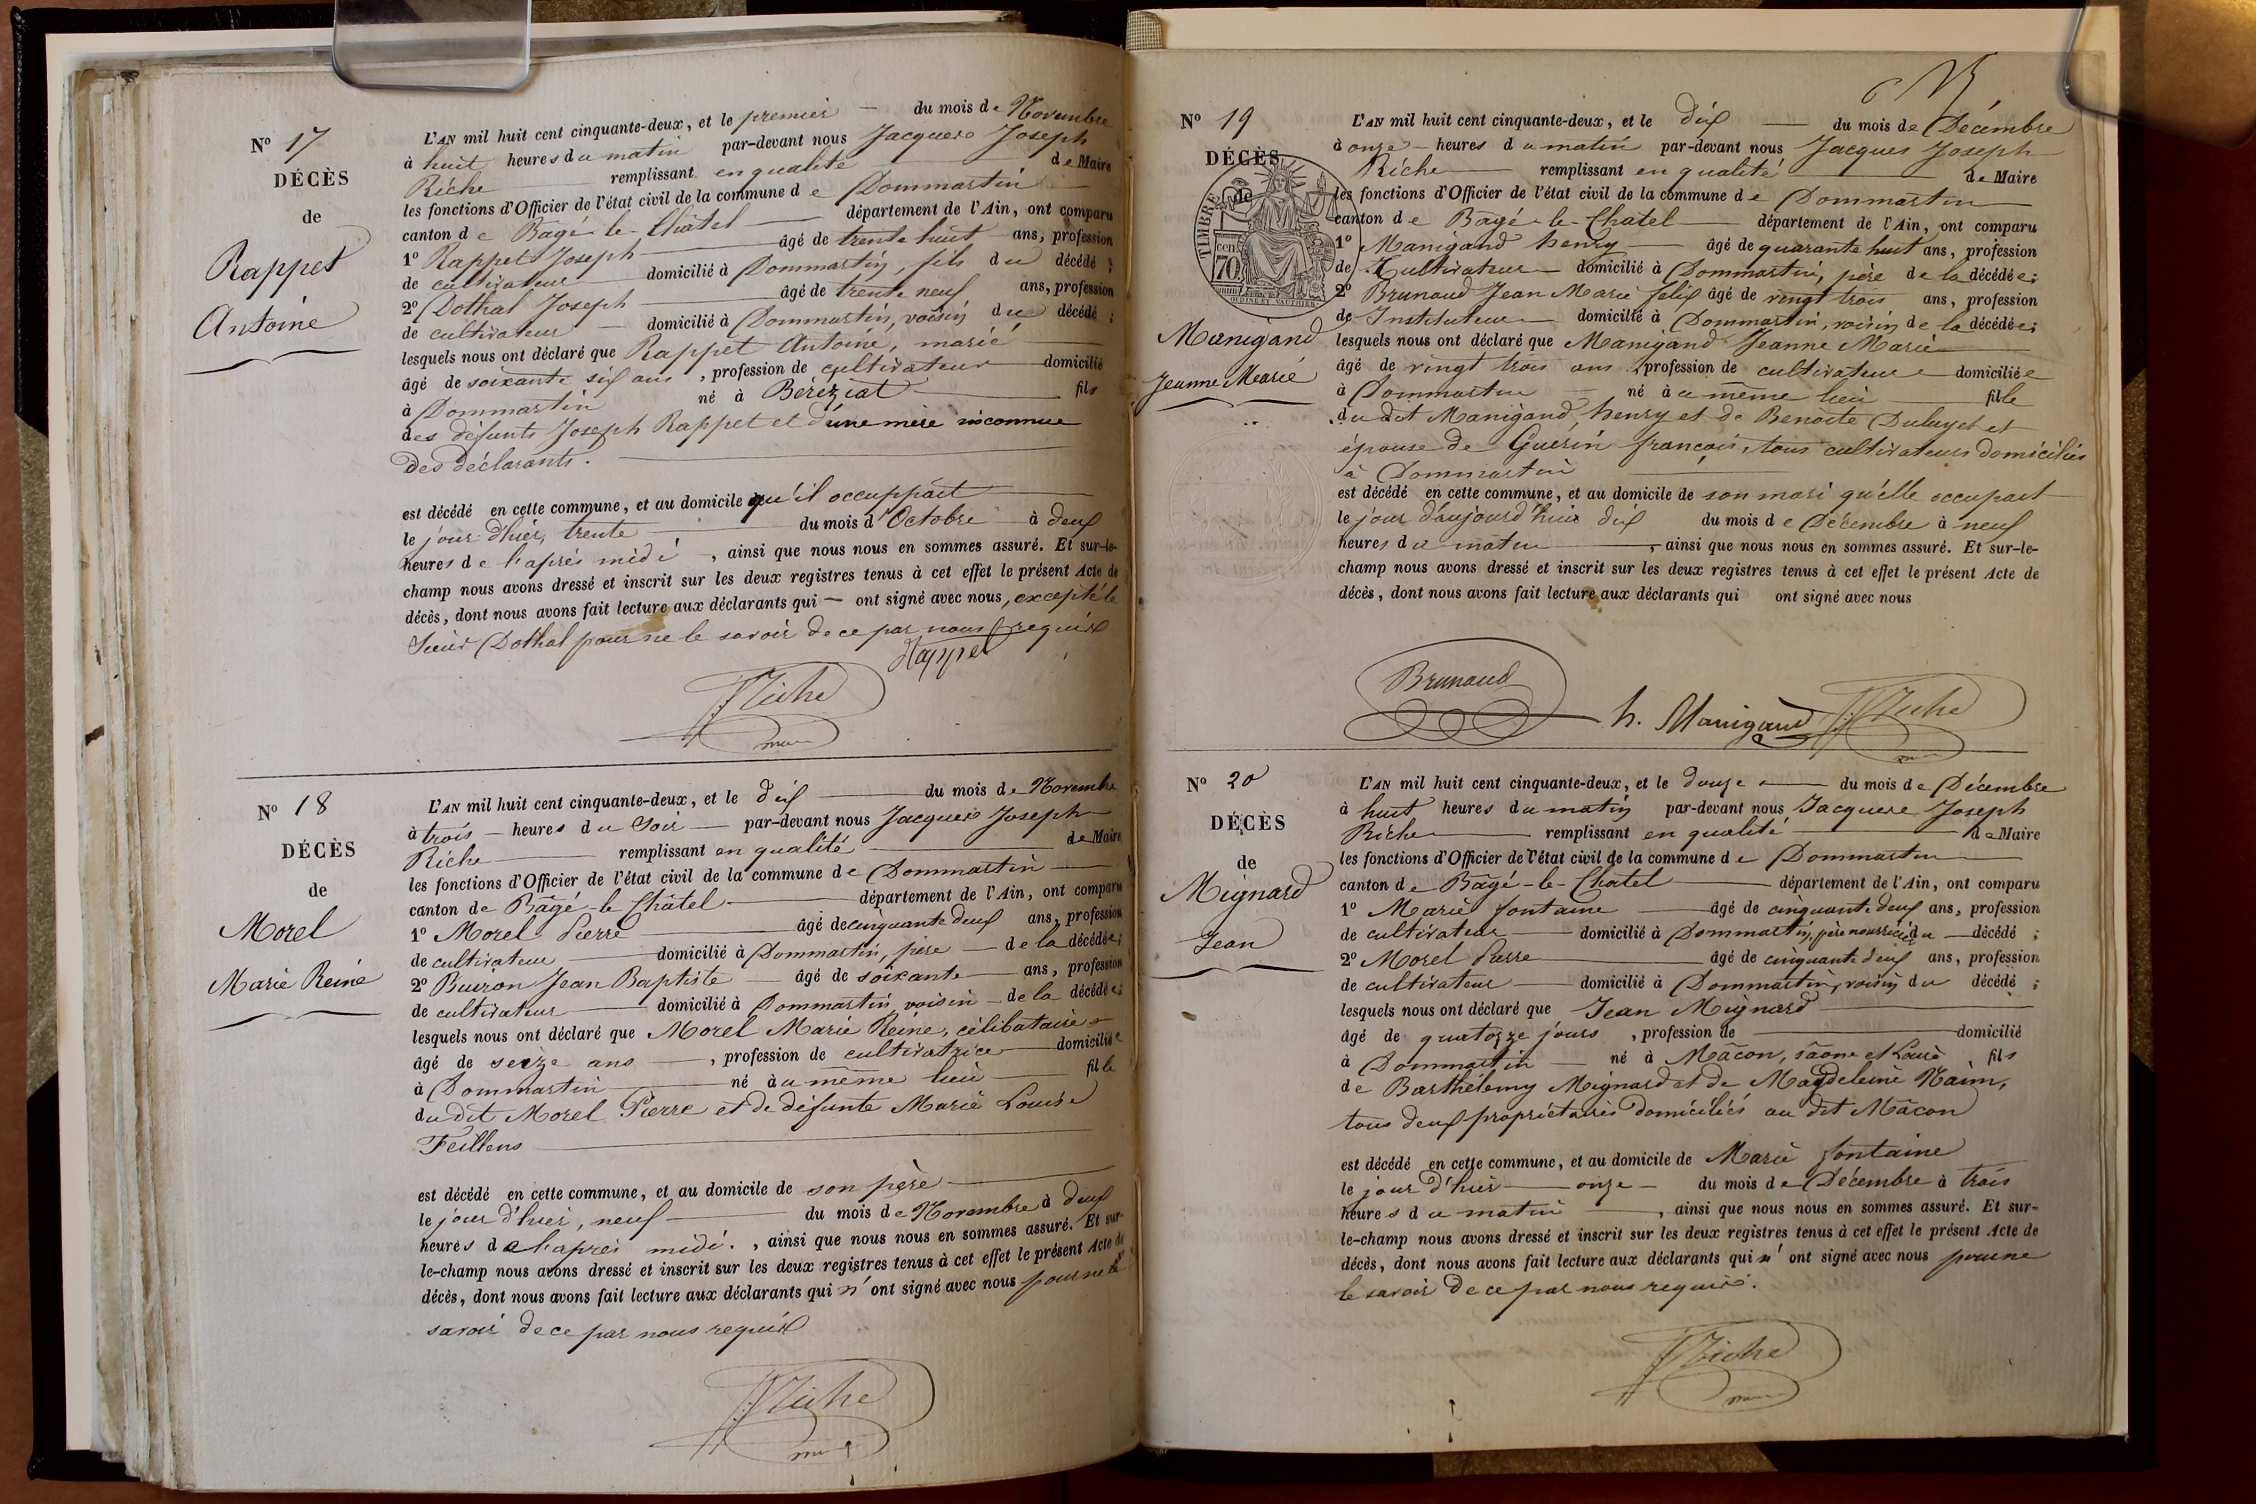 No 17
DÉCÈS
de
Rappet
Antoine
L'AN mil huit cent cinquante-deux, et le premier — du mois de Novembre
à huit heures du matin par-devant nous Jacques Joseph
Riche remplissant en qualité de Maire
les fonctions d'Officier de l'état civil de la commune de Dommartin
canton de Bagé-le-Châtel département de l'Ain, ont comparu
1o Rappet Joseph âgé de trente huit ans, profession
de cultivateur domicilié à Dommartin, fils du décédé ;
2o Dothal Joseph âgé de trente neuf ans, profession
de cultivateur — domicilié à Dommartin, voisin du décédé ;
lesquels nous ont déclaré que Rappet Antoine, marié
âgé de soixante six ans, profession de cultivateur domicilié
à Dommartin né à Béréziat fils
des défunts Joseph Rappet et d'une mère inconnue
des déclarants.
est décédé en cette commune, et au domicile qu'il occuppait
le jour d'hier, trente du mois d'Octobre à deux
heures de l'après midi, ainsi que nous nous en sommes assuré. Et sur-le-
champ nous avons dressé et inscrit sur les deux registres tenus à cet effet le présent Acte de
décès, dont nous avons fait lecture aux déclarants qui — ont signé avec nous, excepté le
Sieur Dothal pour ne le savoir de ce par nous requis
Rappet
Riche
No 18
DÉCÈS
de
Morel
Marie Reine
L'AN mil huit cent cinquante-deux, et le dix du mois de Novembre
à trois — heures du soir — par-devant nous Jacques Joseph
Riche remplissant en qualité de Maire
les fonctions d'Officier de l'état civil de la commune de Dommartin
canton de Bâgé-le-Châtel département de l'Ain, ont comparu
1o Morel Pierre âgé de cinquante deux ans, profession
de cultivateur domicilié à Dommartin, père — de la décédée ;
2o Buiron Jean Baptiste — âgé de soixante ans, profession
de cultivateur domicilié à Dommartin, voisin — de la décédée ;
lesquels nous ont déclaré que Morel Marie Reine, célibataire
âgé de seize ans, profession de cultivatrice domiciliée
à Dommartin né au même lieu fille
du dit Morel Pierre et de défunte Marie Louise
Feillens
est décédé en cette commune, et au domicile de son père
le jour d'hier, neuf du mois de Novembre à deux
heures de l'après midi., ainsi que nous nous en sommes assuré. Et sur-
le-champ nous avons dressé et inscrit sur les deux registres tenus à cet effet le présent Acte de
décès, dont nous avons fait lecture aux déclarants qui n'ont signé avec nous pour ne le
savoir de ce par nous requis
Riche
No 19
DÉCÈS
de
TIMBRE
70 cen
Manigand
Jeanne Marie
L'AN mil huit cent cinquante-deux, et le dix — du mois de Décembre
à onze — heures du matin par-devant nous Jacques Joseph
Riche remplissant en qualité de Maire
les fonctions d'Officier de l'état civil de la commune de Dommartin
canton de Bâgé-le-Chatel département de l'Ain, ont comparu
1o Manigand henry âgé de quarante huit ans, profession
de Cultivateur — domicilié à Dommartin, père de la décédée ;
2o Brunaud Jean Marie félix âgé de vingt trois ans, profession
de Instituteur domicilié à Dommartin, voisin de la décédée ;
lesquels nous ont déclaré que Manigand Jeanne Marie
âgé de vingt trois ans, profession de cultivateur domiciliée
à Dommartin né au même lieu fille
du dit Manigand henry et de Benoite et
épouse de Guérin françois, tous cultivateurs domiciliés
à Dommartin
est décédé en cette commune, et au domicile de son mari qu'elle occupait
le jour d'aujourd'hui dix du mois de Décembre à neuf
heures du matin, ainsi que nous nous en sommes assuré. Et sur-le-
champ nous avons dressé et inscrit sur les deux registres tenus à cet effet le présent Acte de
décès, dont nous avons fait lecture aux déclarants qui ont signé avec nous
Brunaud
h. Manigand
Riche
No 20
DÉCÈS
de
Mignard
Jean
L'AN mil huit cent cinquante-deux, et le douze du mois de Décembre
à huit heures du matin par-devant nous Jacques Joseph
Riche remplissant en qualité de Maire
les fonctions d'Officier de l'état civil de la commune de Dommartin
canton de Bâgé-le-Chatel département de l'Ain, ont comparu
1o Marie fontaine âgé de cinquante deux ans, profession
de cultivateur domicilié à Dommartin, père nourricier du décédé ;
2o Morel Pierre âgé de cinquante deux ans, profession
de cultivateur domicilié à Dommartin, voisin du décédé ;
lesquels nous ont déclaré que Jean Mignard
âgé de quatorze jours, profession de domicilié
à Dommartin né à Mâcon, sâone et Loire, fils
de Barthélemy Mignard et de Magdeleine Naim,
tous deux propriétaires domiciliés au dit Mâcon
est décédé en cette commune, et au domicile de Marie fontaine
le jour d'hier onze — du mois de Décembre à trois
heures du matin, ainsi que nous nous en sommes assuré. Et sur-
le-champ nous avons dressé et inscrit sur les deux registres tenus à cet effet le présent Acte de
décès, dont nous avons fait lecture aux déclarants qui n'ont signé avec nous pour ne
le savoir de ce par nous requis.
Riche